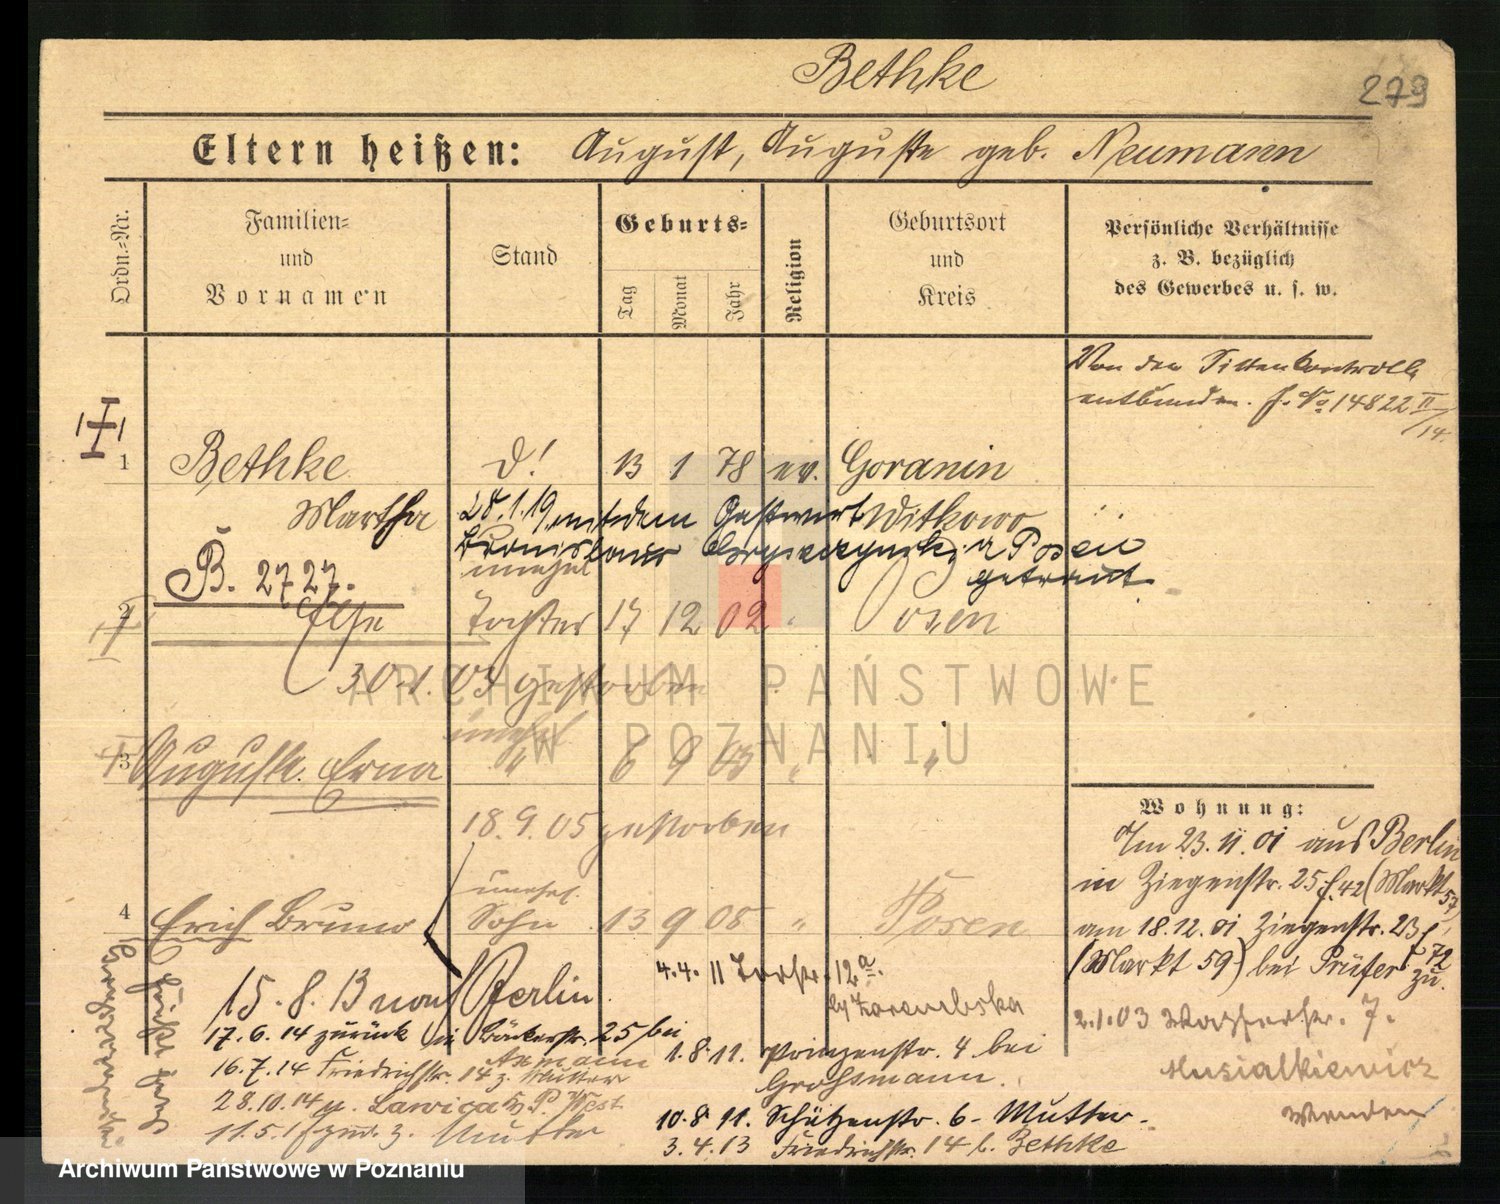 Bethke
279
Eltern heißen: August, Auguste geb. Neumann
Ordn.-Nr.
Familien-
und
Vornamen
Stand
Geburts-
Tag
Monat
Jahr
Religion
Geburtsort
und
Kreis
Persönliche Verhältnisse
z. B. bezüglich
des Gewerbes u. s. w.
Von der Sittenkontrolle
entbunden. J. No 14822 II/14.
1 Bethke d! 13 1 78 ev. Goranin
Martha
Witkowo
28.1.19, mit dem Gastwirt
in Posen
getraut.
B. 2727.
unehel
2 Else Tochter 17 12 02 Posen
30.1.03 gestorben
unehel
3 Auguste Erna " 6 9 05 " "
18.9.05 gestorben
unehel.
4 Erich Bruno Sohn 13 9 08 " Posen
Wohnung:
Am 23.11.01 aus Berlin
in Ziegenstr. 25 f. 42 (Markt 57)
am 18.12.01 Ziegenstr. 23 f. 72
(Markt 59) bei Prüfer zu.
2.1.03 Wasserstr. 7.
Musialkiewicz
Wenden
heißt jetzt
15.8.13 nach Berlin
17.6.14 zurück in Bäckerstr. 25 bei
Axmann
16.7.14 Friedrichstr. 14 z. Mutter
28.10.14 n. Lawica Kr. P. West
11.5.15 zur. z. Mutter
4.4.11 Torstr. 12a.
by Zarembska
1.8.11. Prinzenstr. 4 bei
Grohsmann.
10.8.11. Schützenstr. 6 - Mutter.
3.4.13 Friedrichstr. 14 b. Bethke
ARCHIWUM PAŃSTWOWE
W POZNANIU
Archiwum Państwowe w Poznaniu